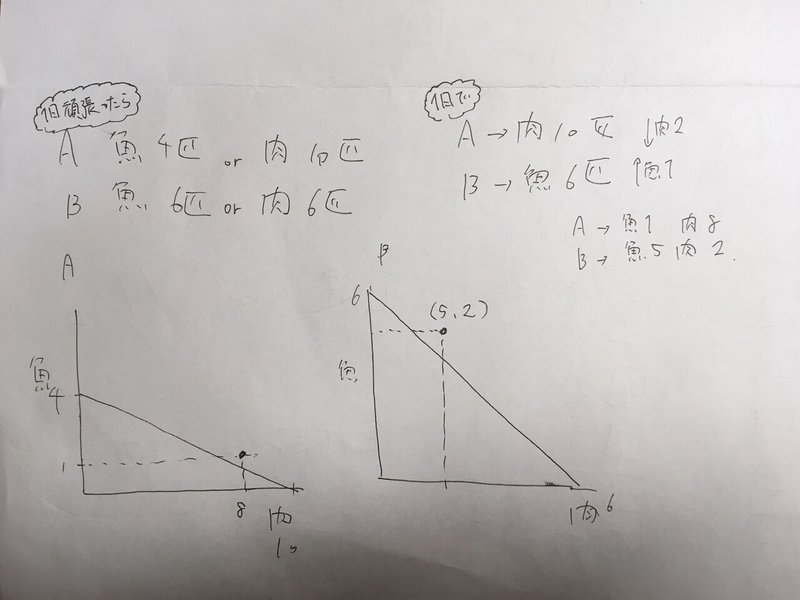 1日頑張ったら
A 魚 4匹 or 肉 10匹
B 魚 6匹 or 肉 6匹
1日で
A → 肉 10匹 ↓肉2
B → 魚 6匹 ↑魚1
A → 魚1 肉8
B → 魚5 肉2.
A
魚
4
1
8
肉
10
B
6
(5,2)
魚
肉 6